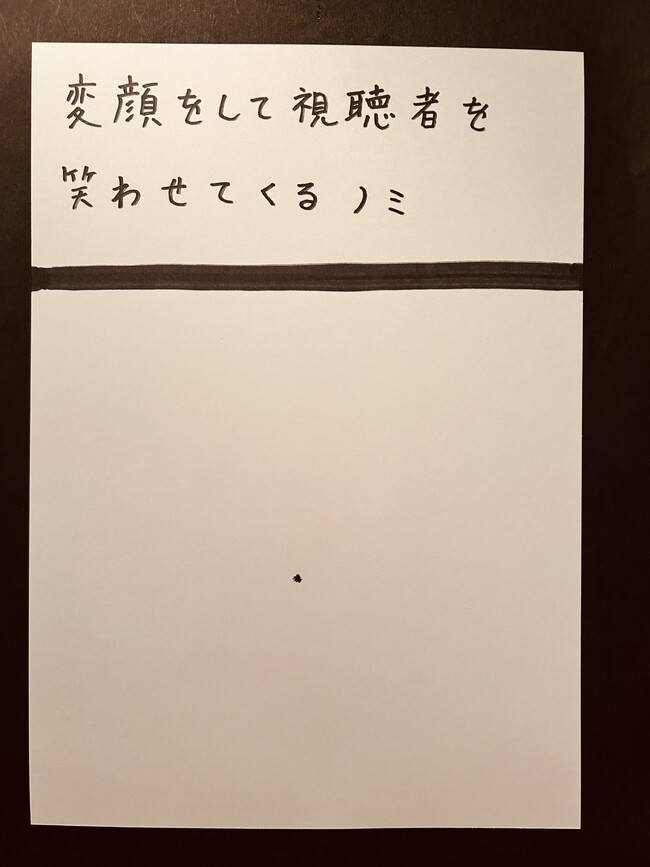 変顔をして視聴者を
笑わせてくるノミ